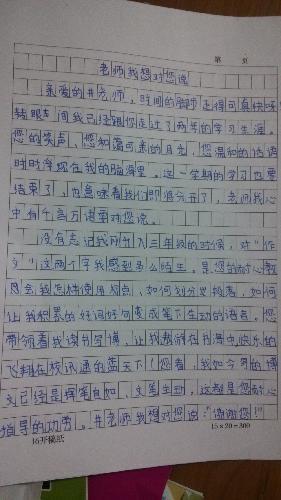 第 页
老师我想对您说
亲爱的井老师，时间的脚步走得可真快呀！
转眼之间我已经跟您走过了两年的学习生涯。
您的笑声、您和蔼可亲的目光，您温和的话语
时时浮现在我的脑海里。这一学期的学习也要
结束了，也意味着我们即将分开了，老师我心
中有千言万语要对您说。
没有忘记我刚升入三年级的时候，对“作
文”这两个字我感到多么陌生。是您的耐心教
会我怎样使用标点，如何划分段落，如何
让我积累的好词好句变成笔下生动的语言。您
带领着我读书写博，让我翱翔在书海中快乐的
飞翔在校讯通的蓝天下！您看，我如今的博
文已经是挥笔自如，文笔生动，这都是您耐心
指导的功劳。井老师我想对您说：“谢谢您！”
16开稿纸
15×20=300